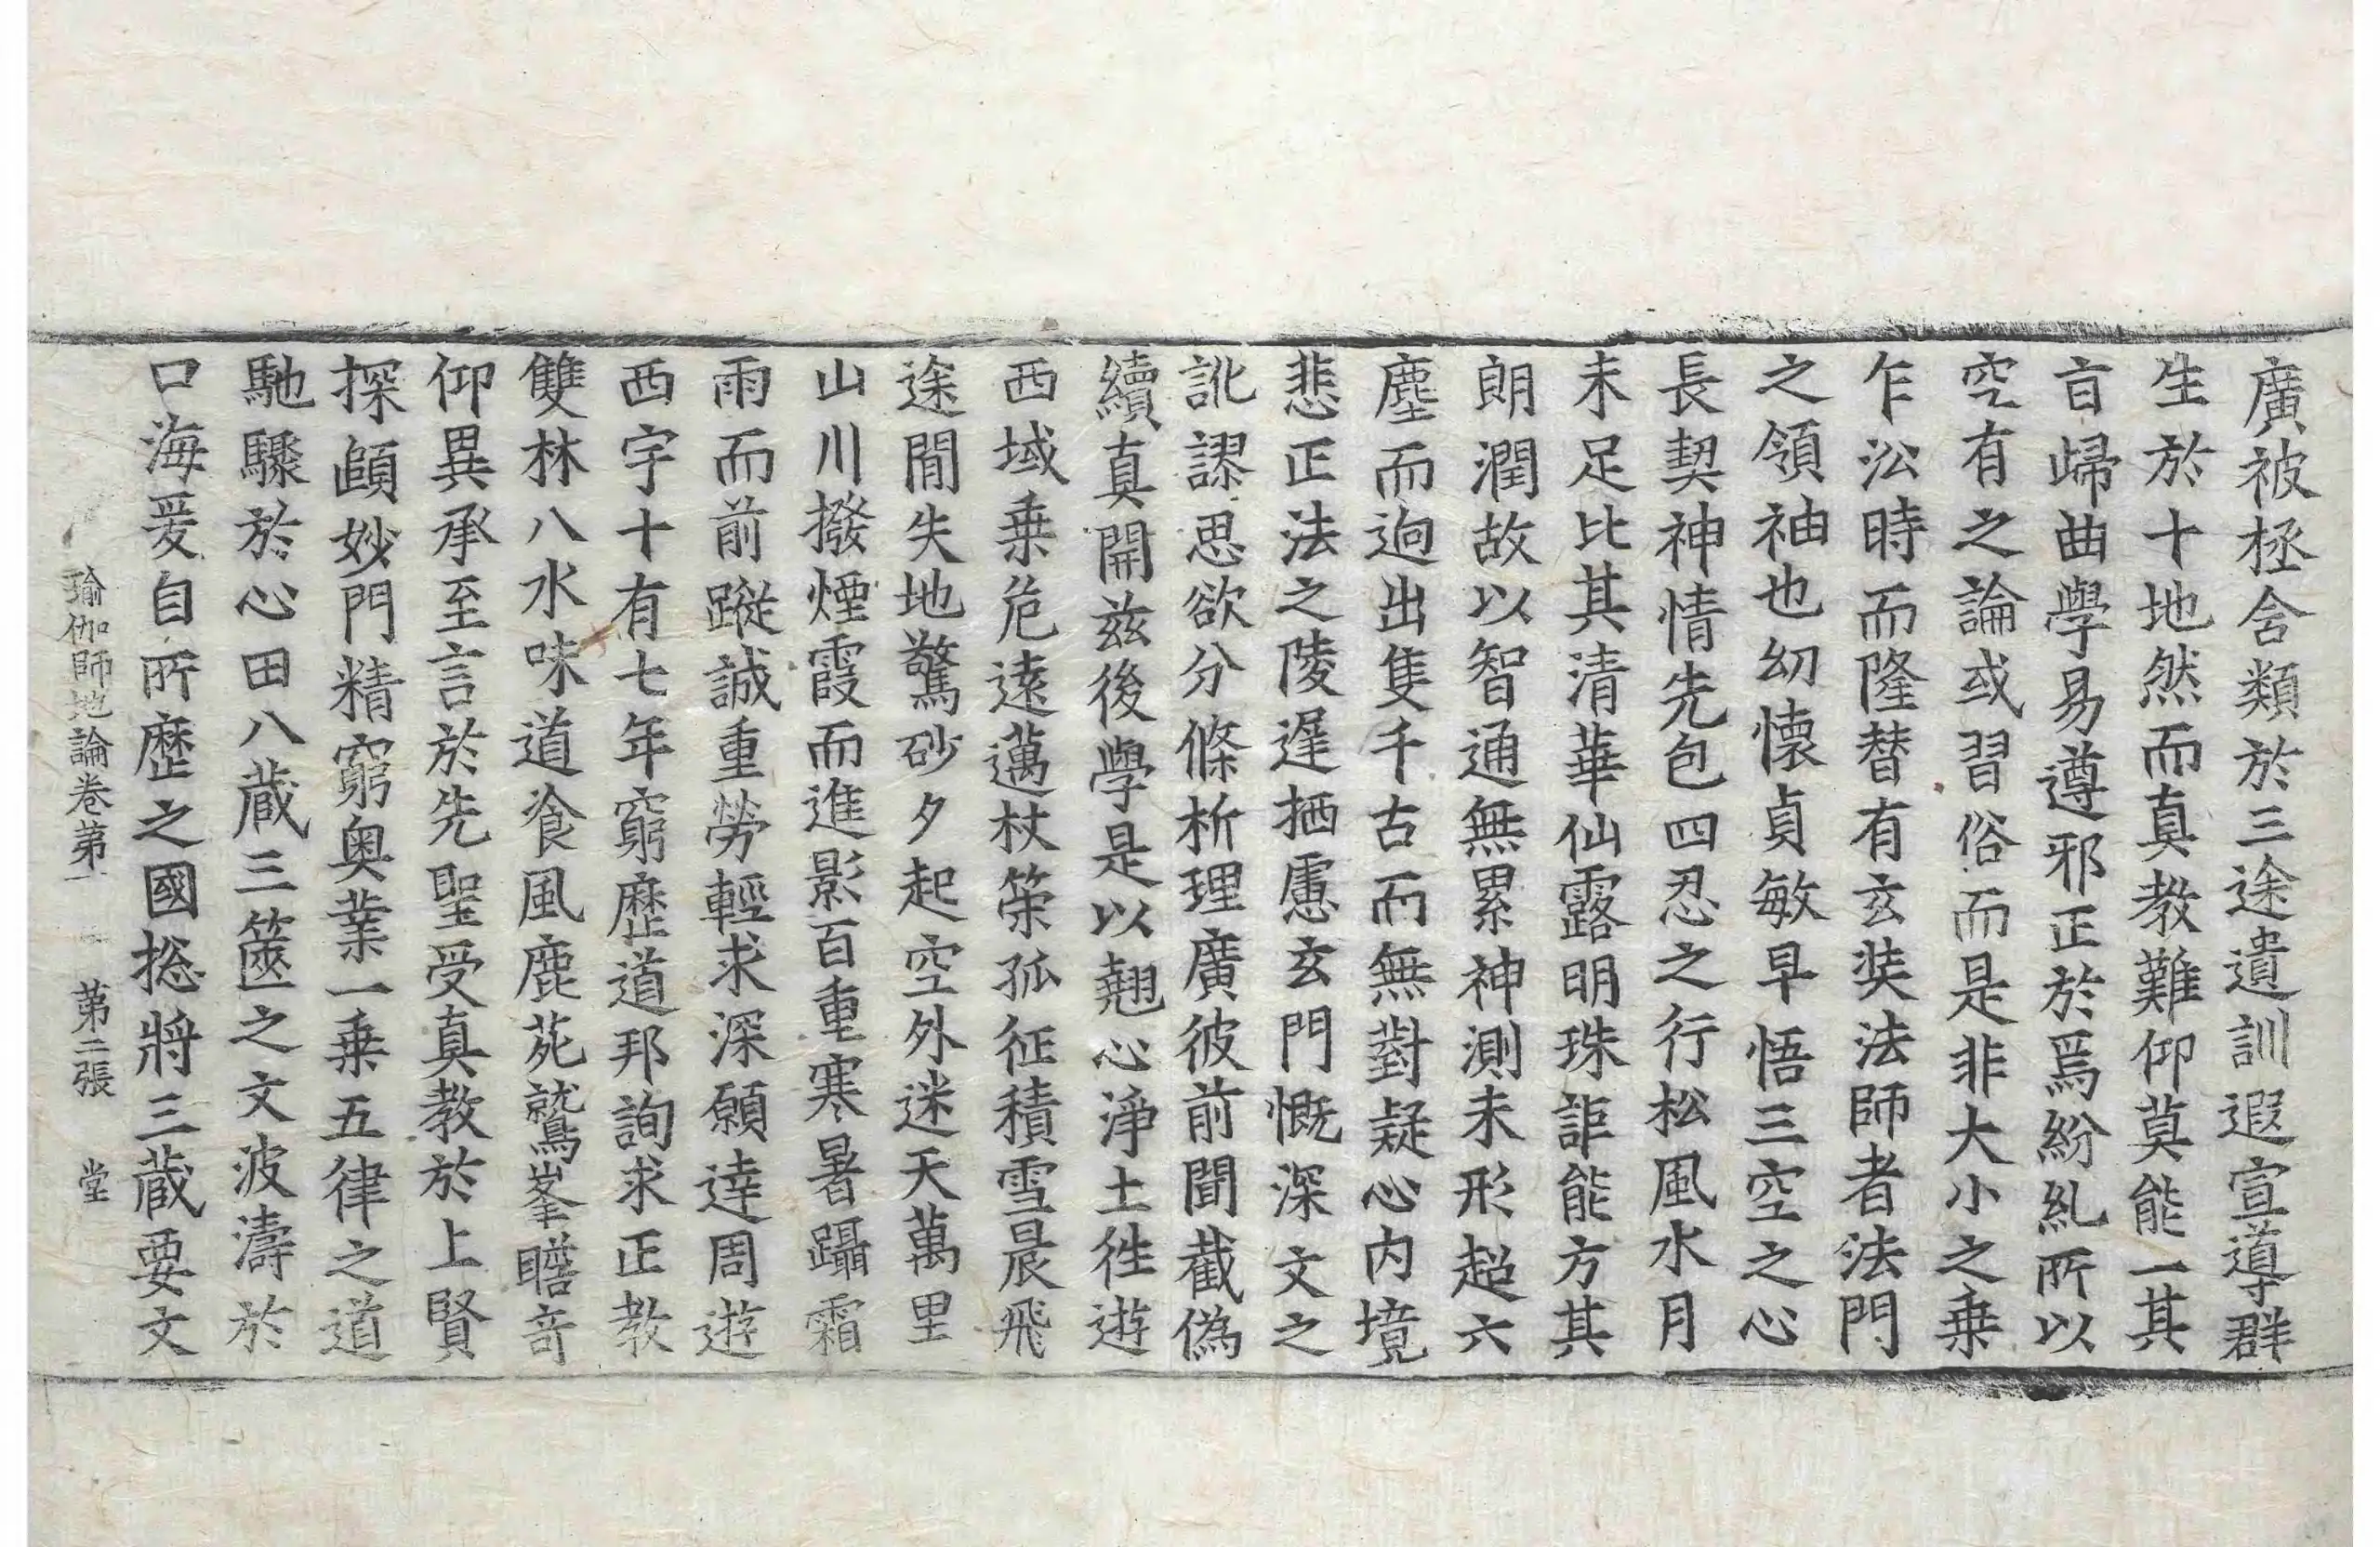 廣被拯含類於三途遺訓遐宣導群
生於十地然而真教難仰莫能一其
旨歸曲學易遵邪正於焉紛糺所以
空有之論或習俗而是非大小之乗
乍㳂時而隆替有玄奘法師者法門
之領袖也幼懷貞敏早悟三空之心
長契神情先包四忍之行松風水月
未足比其清華仙露明珠詎能方其
朗潤故以智通無累神測未形超六
塵而逈出隻千古而無對凝心内境
悲正法之陵遲栖慮玄門慨深文之
訛謬思欲分條析理廣彼前聞截偽
續真開兹後學是以翹心淨土徃遊
西域乗危遠邁杖策孤征積雪晨飛
途閒失地驚砂夕起空外迷天萬里
山川撥煙霞而進影百重寒暑躡霜
雨而前蹤誠重勞輕求深願達周遊
西宇十有七年窮歷道邦詢求正教
雙林八水味道飡風鹿苑鷲峯瞻竒
仰異承至言於先聖受真教於上賢
探賾妙門精窮奥業一乗五律之道
馳驟於心田八藏三篋之文波濤於
口海爰自所歷之國捴將三藏要文
瑜伽師地論卷第一 第二張 堂